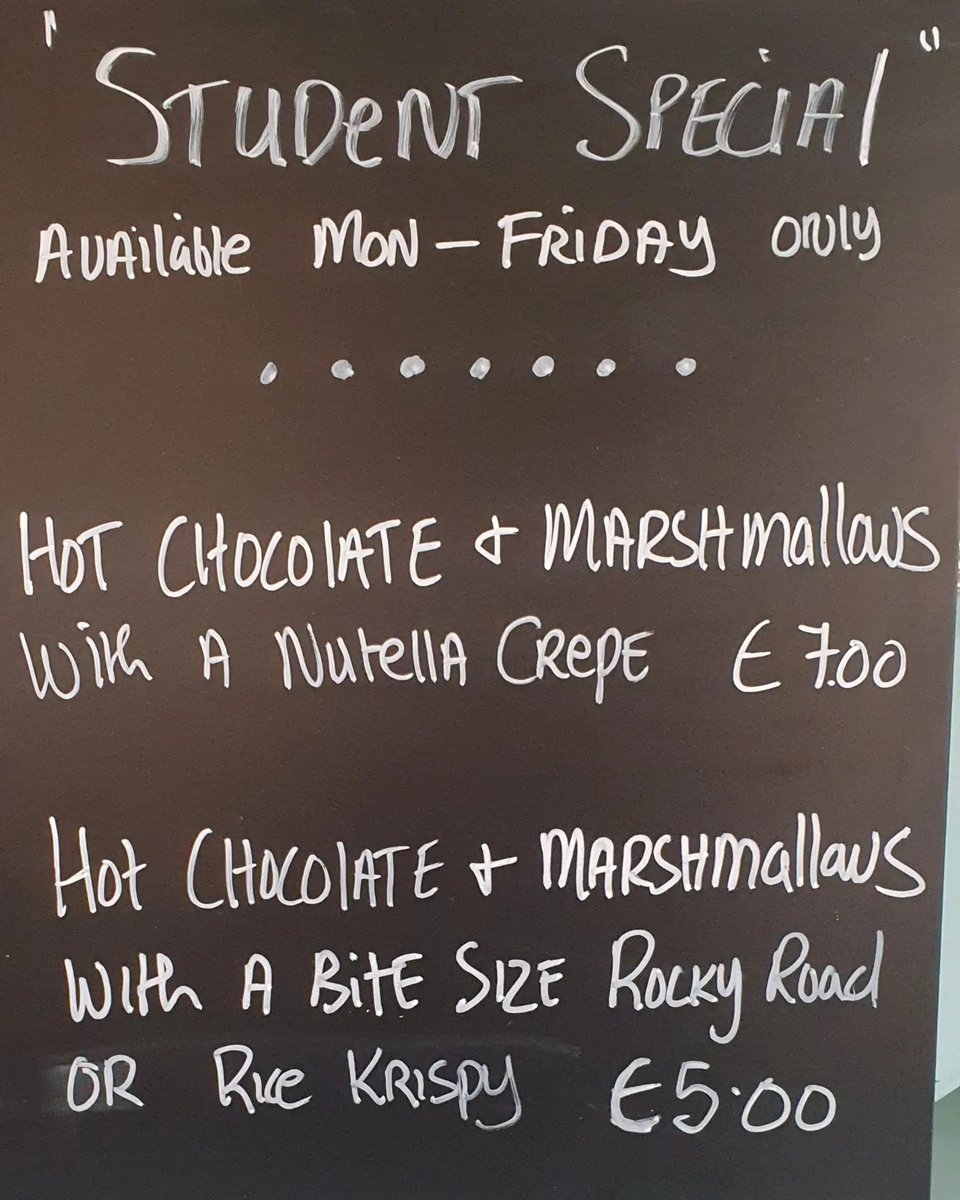 "STUDENT SPECIAL"
AVAilable MON - FRIDAY only
.......
HOT CHOCOLATE + MARSHmallows
With A NUtellA CRepE €7.00
Hot CHOCOLATE + MARSHmallows
With A BitE SIZE Rocky Road
OR Rice KRISPY €5.00